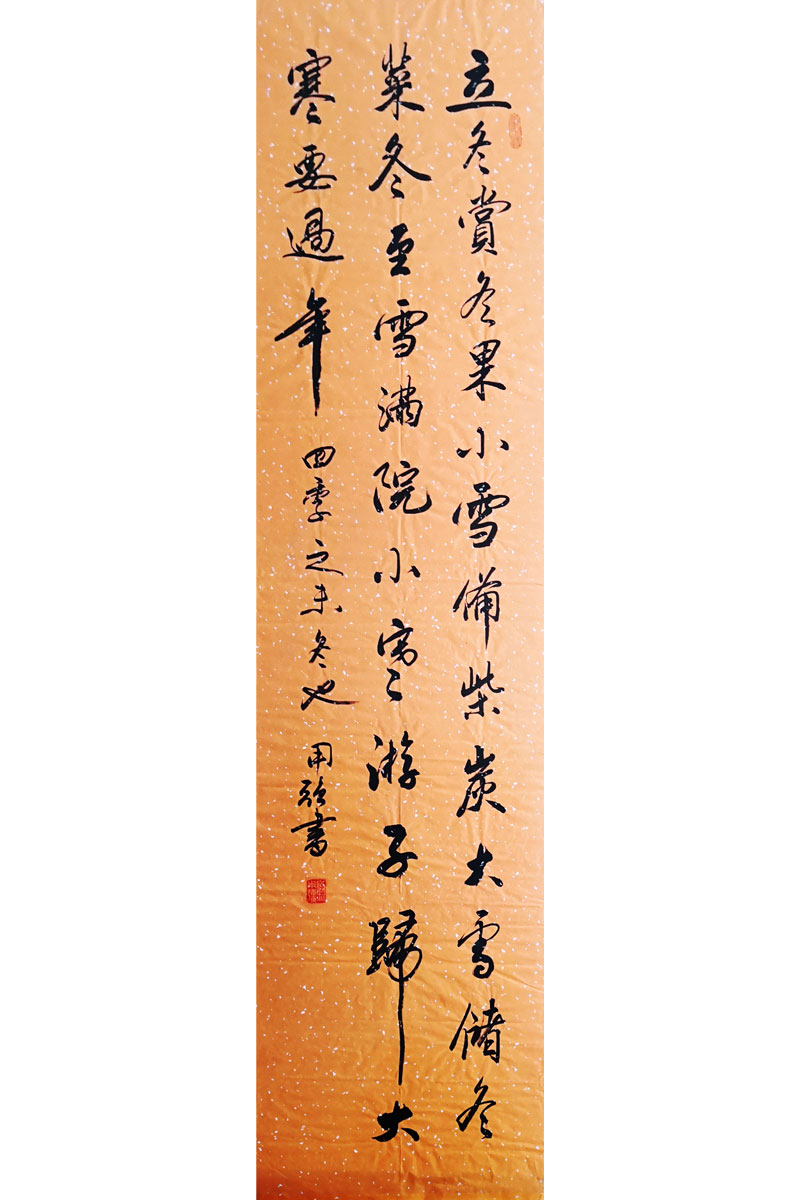 立冬賞冬果小雪備柴炭大雪儲冬
菜冬至雪滿院小寒游子歸大
寒要過年
四季之末冬也
用強書